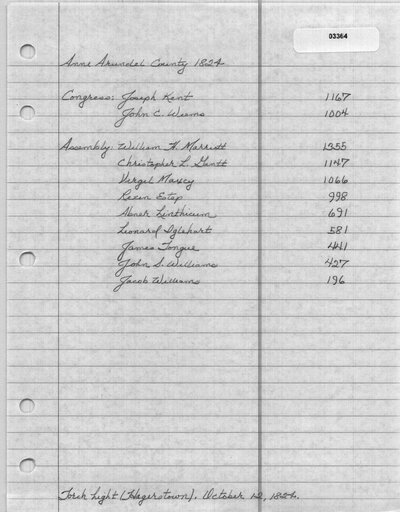 03364
Anne Arundel County 1824
Congress: Joseph Kent 1167
John C. Weems 1004
Assembly: William H. Marriott 1355
Christopher L. Gantt 1147
Virgil Maxcy 1066
Rezin Estep 998
Abner Linthicum 691
Leonard Iglehart 581
James Tongue 441
John S. Williams 427
Jacob Williams 196
Torch Light (Hagerstown). October 12, 1824.